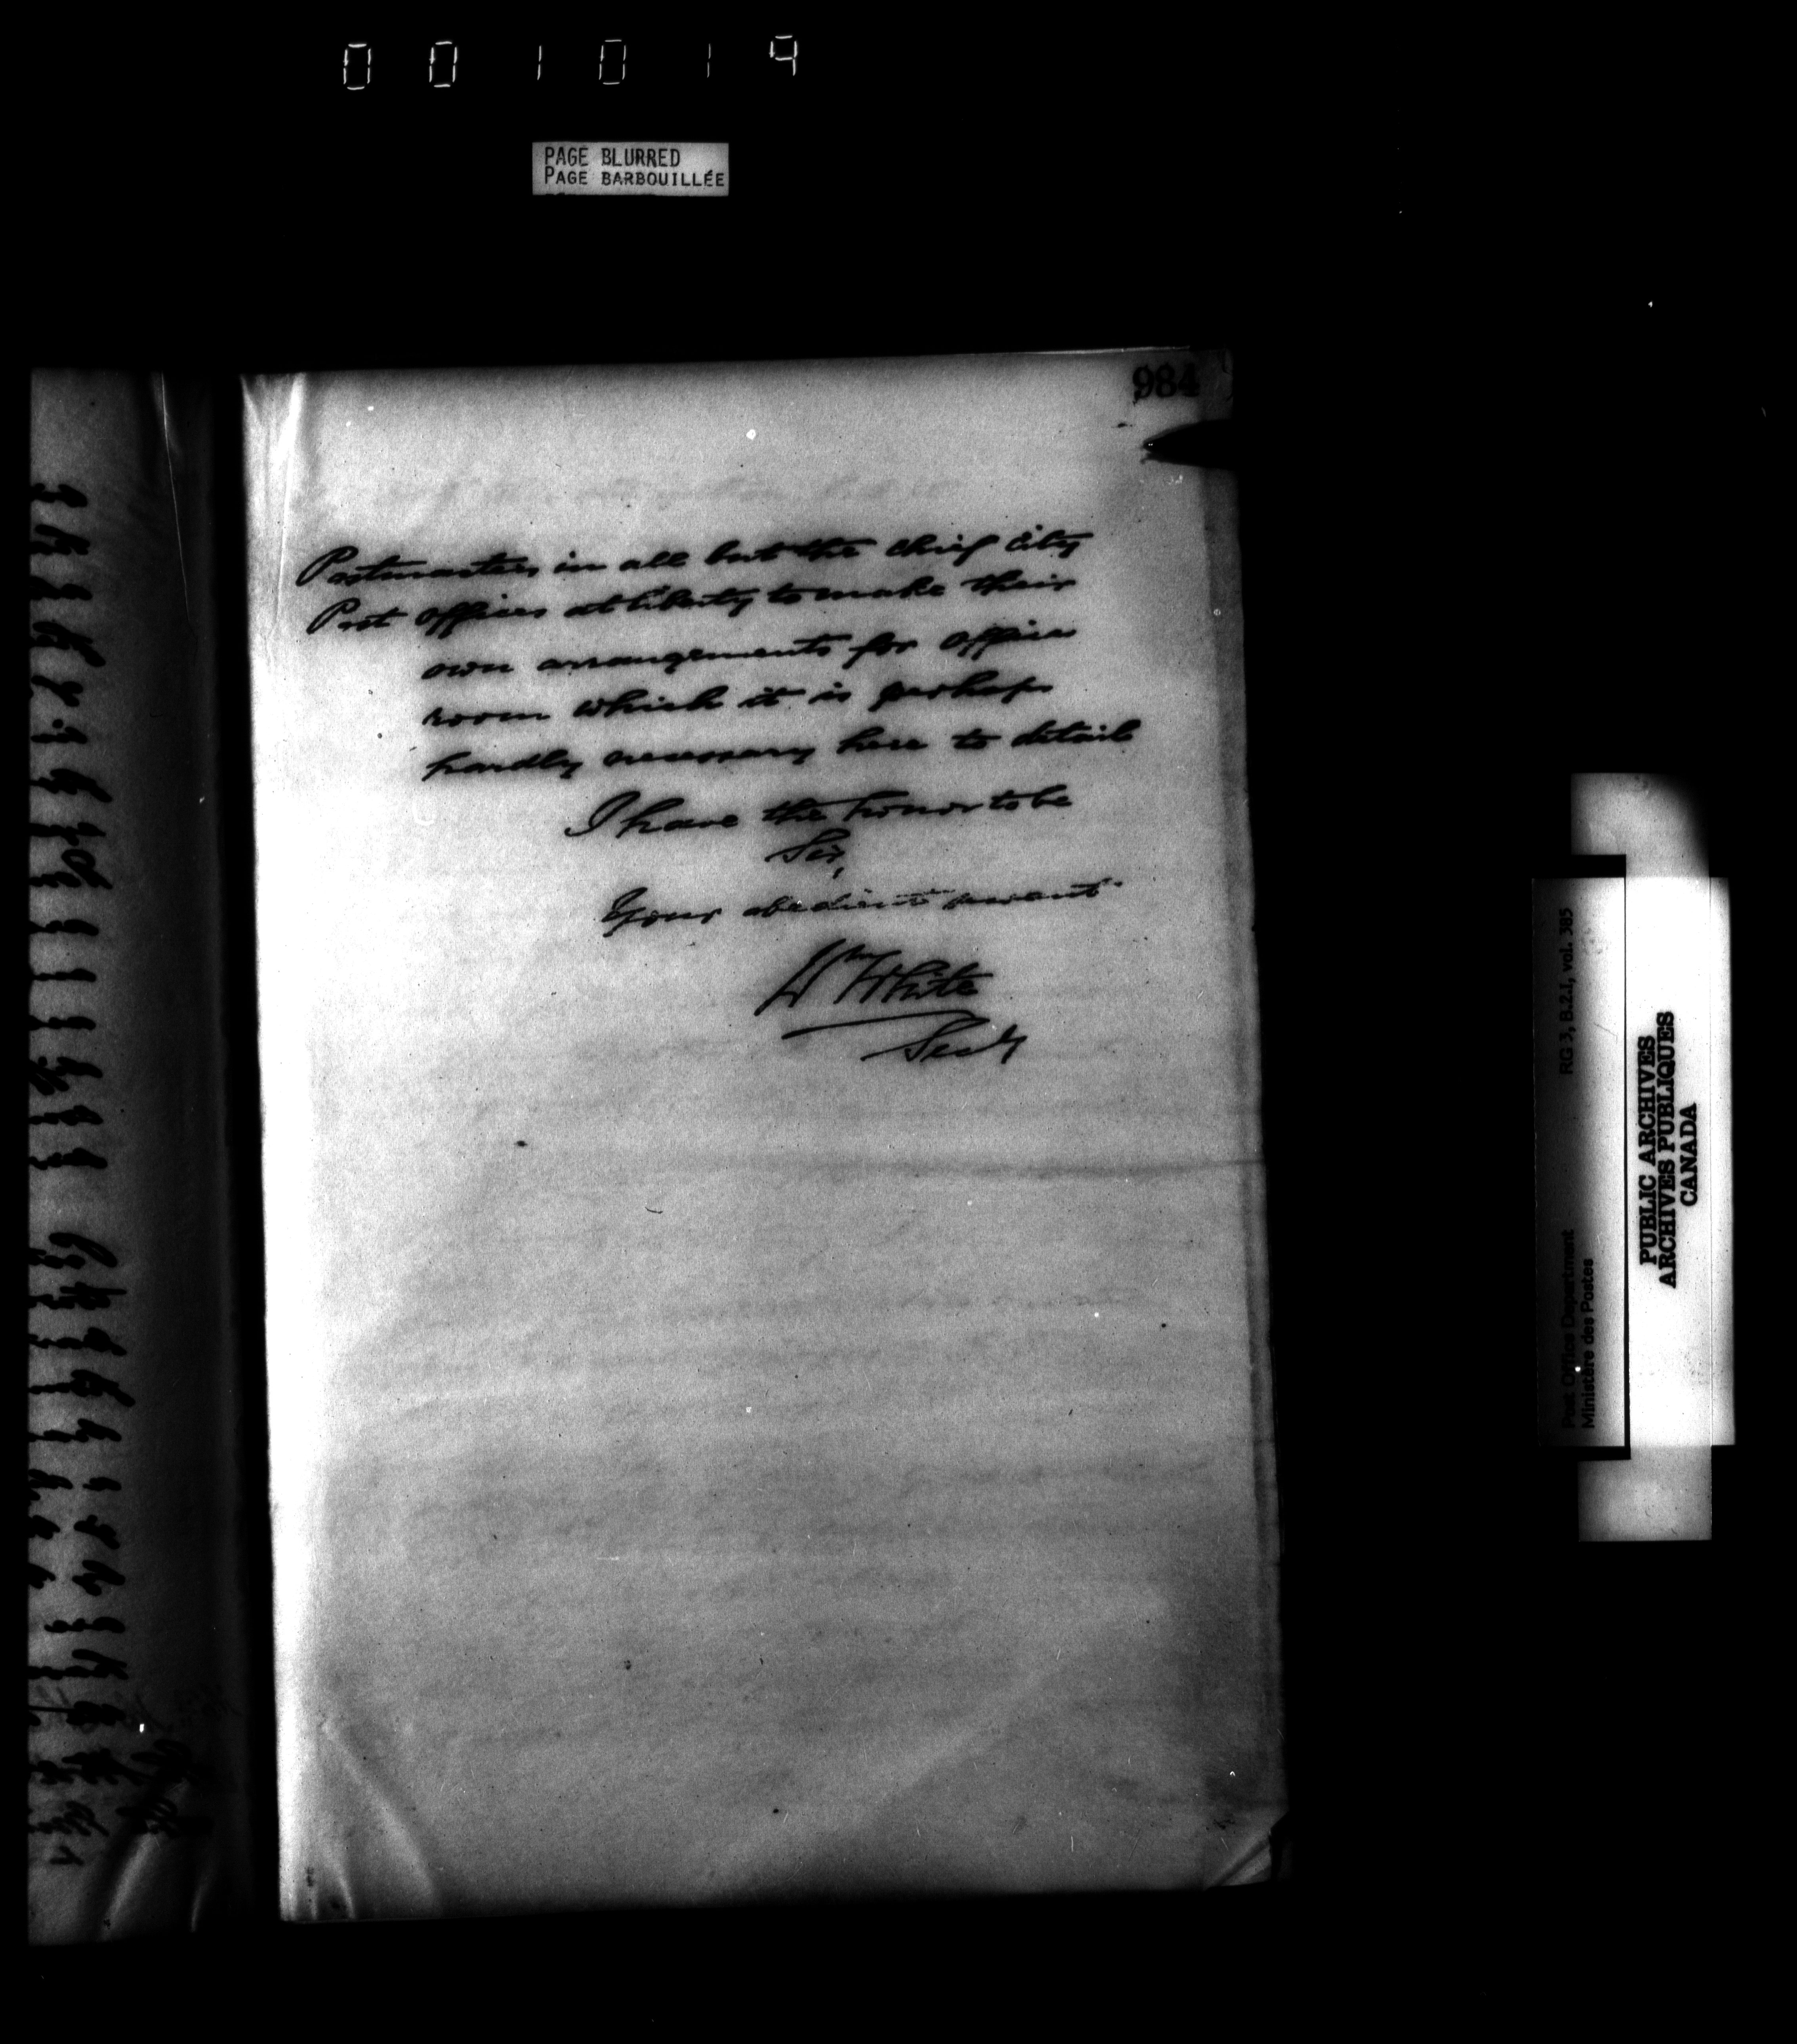 001019
PAGE BLURRED
PAGE BARBOUILLÉE
984
Postmasters in all but the chief City
Post offices at liberty to make their
own arrangements for office
room which it is perhaps
hardly necessary here to detail
I have the honor to be
Sir,
Your obedient servant
Wm White
Secy
Post Office Department
Ministère des Postes
RG 3, B.2.1, vol. 385
PUBLIC ARCHIVES
ARCHIVES PUBLIQUES
CANADA